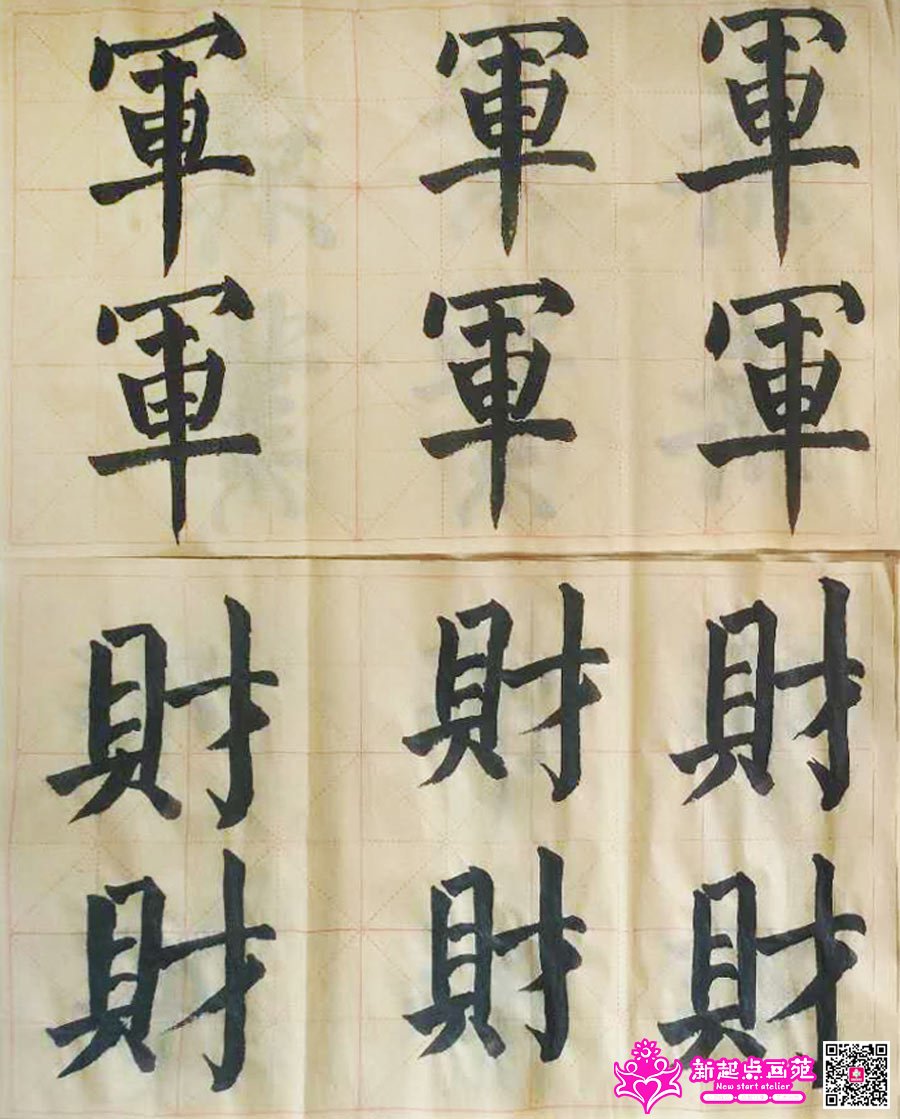 軍 軍 軍
軍 軍 軍
財 財 財
財 財 財
新起点画苑
New start atelier